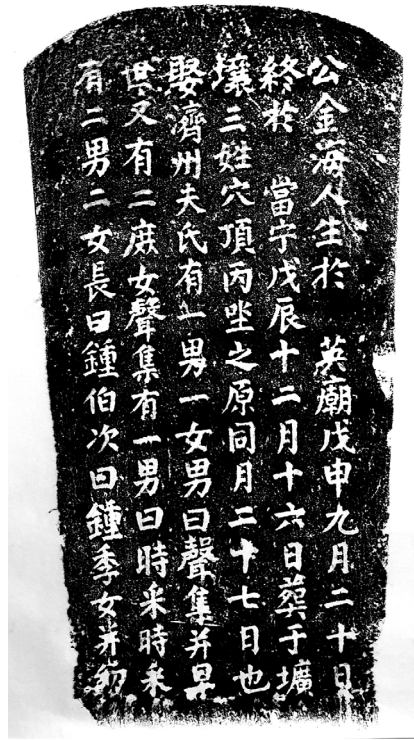 公金海人生於 英廟戊申九月二十日
終於 當宁戊辰十二月十六日葬于壙
壤三姓穴頂丙坐之原同月二十七日也
娶濟州夫氏有一男一女男曰聲集并早
世又有二庶女聲集有一男曰時采時采
有二男二女長曰鍾伯次曰鍾季女并幼